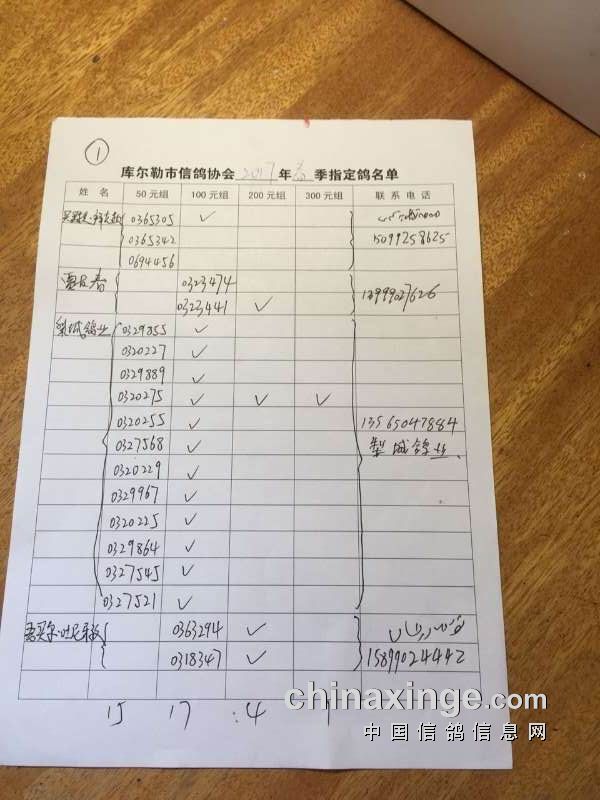 ①
库尔勒市信鸽协会 2017 年 春 季指定鸽名单
姓 名 50元组 100元组 200元组 300元组 联系电话
0365305 ✓
0365342 15099258625
0694456
0323474
0323441 ✓ 13999027626
梨城鸽业 0329855 ✓
0320227 ✓
0329889 ✓
0320275 ✓ ✓ ✓
0320255 ✓ 13565047884
0327568 ✓ 梨城鸽业
0320229 ✓
0329967 ✓
0320225 ✓
0329864 ✓
0327545 ✓
0327521 ✓
0363294 ✓
0318347 ✓ 15899024442
15 17 4 1
chinaxinge.com
中国信鸽信息网